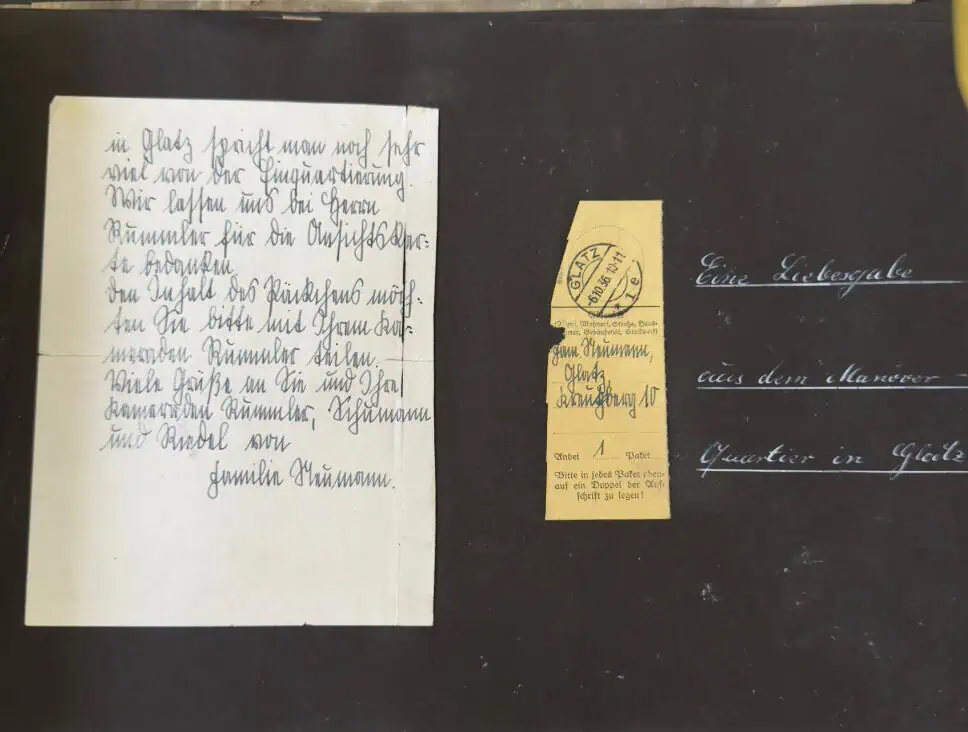 in Glatz spricht man noch sehr
viel von der Einquartierung.
Wir lassen uns bei Herrn
Rummler für die Ansichtskar=
te bedanken.
Den Inhalt des Päckchens möch=
ten Sie bitte mit Ihrem Ka=
meraden Rummler teilen.
Viele Grüße an Sie und Ihre
Kameraden Rummler, Schumann
und Riedel von
Familie Neumann.
GLATZ
-6.10.36.10-11
* 1 e
Wohnort, Straße, Haus-
Gebäudeteil, Stockwerk
Fam. Neumann,
Glatz
Kreuzberg 10
Anbei 1 Paket
Bitte in jedes Paket oben-
auf ein Doppel der Auf-
schrift zu legen!
Eine Liebesgabe
aus dem Manöver-
Quartier in Glatz